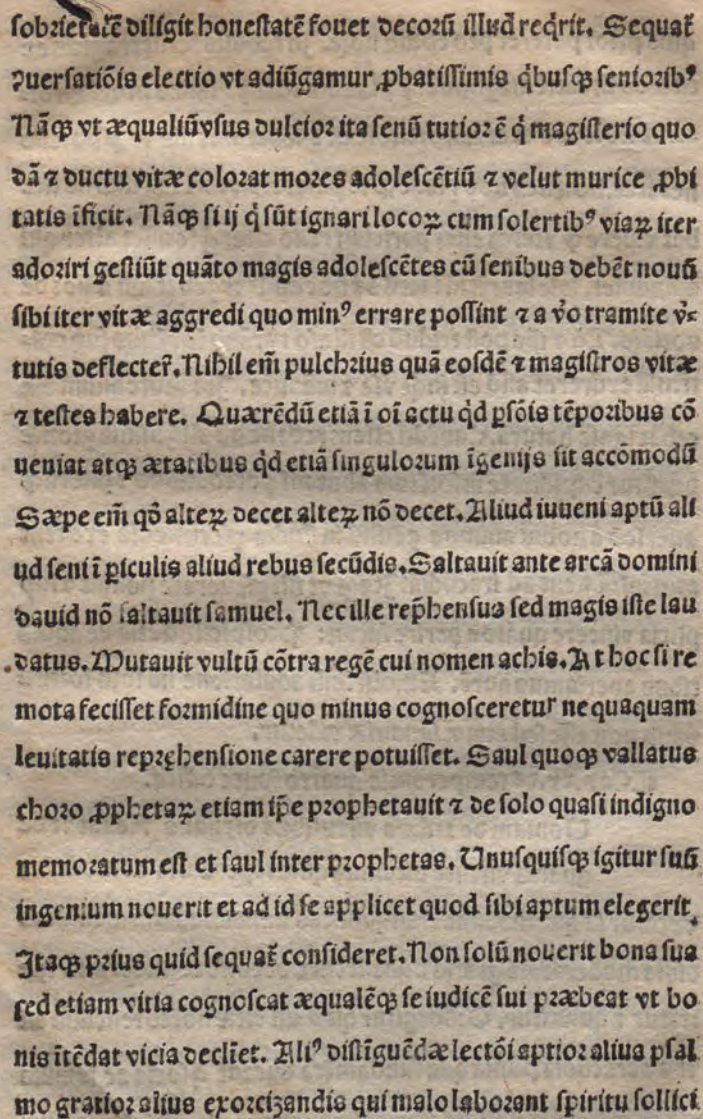 sobrietatē diligit honestatē fouet decorū illud reqͥrit. Sequat᷑
ꝯuersatiōis electio vt adiūgamur ꝓbatissimis qͥbusqꝫ seniorib⁹
Nāqꝫ vt æqualiū vsus dulcior ita senū tutior ē qͥ magisterio quo
dā ⁊ ductu vitæ colorat mores adolescētiū ⁊ velut murice ꝓbi
tatis īficit. Nāqꝫ si ij qͥ sūt ignari locoꝝ cum solertib⁹ viaꝝ iter
adoriri gestiūt quāto magis adolescētes cū senibus debēt nouū
sibi iter vitæ aggredi quo min⁹ errare possint ⁊ a v̊o tramite v̊
tutis deflecter̄. Nihil em̄ pulchrius quā eosdē ⁊ magistros vitæ
⁊ testes habere. Quærēdū etiā ī oī actu qͥd ꝑsōis tēporibus cō
ueniat atqꝫ ætatibus qͥd etiā singulorum īgenijs sit accōmodū
Sæpe em̄ qō alteꝝ decet alteꝝ nō decet. Aliud iuueni aptū ali
ud seni ī ꝑiculis aliud rebus secūdis. Saltauit ante arcā domini
dauid nō saltauit samuel. Nec ille rep̄hensus sed magis iste lau
datus. Mutauit vultū cōtra regē cui nomen achis. At hoc si re
mota fecisset formidine quo minus cognosceretur nequaquam
leuitatis repręhensione carere potuisset. Saul quoqꝫ vallatus
choro ꝓphetaꝝ etiam ip̄e prophetauit ⁊ de solo quasi indigno
memoratum est et saul inter prophetas. Unusquisqꝫ igitur suū
ingenium nouerit et ad id se applicet quod sibi aptum elegerit.
Itaqꝫ prius quid sequat᷑ consideret. Non solū nouerit bona sua
sed etiam vitia cognoscat æqualēqꝫ se iudicē sui præbeat vt bo
nis ītēdat vicia declīet. Ali⁹ distīguēdæ lectōi aptior alius psal
mo gratior alius exorcizandis qui malo laborant spiritu sollici